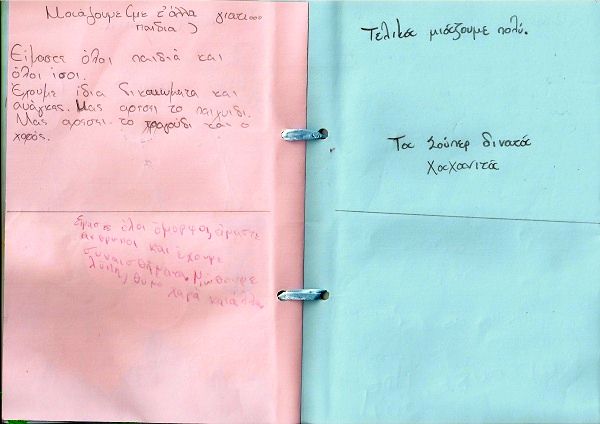 Μοιάζουμε (με τ' άλλα γιατι...
παιδια)
Είμαστε όλοι παιδιά και
όλοι ίσοι.
Έχουμε ίδια δικαιώματα και
ανάγκες. Μας αρεσει το παιχνιδι.
Μας αρεσει το τραγούδι και ο
χορός.
Είμαστε όλοι όμορφοι, είμαστε
άνθρωποι και έχουμε
συναισθήματα. Νιώθουμε
λύπη, θυμο χαρά και άλλα
Τελικά μιάζουμε πολύ.
Τα Σούπερ δινατά
Χαχανιτά